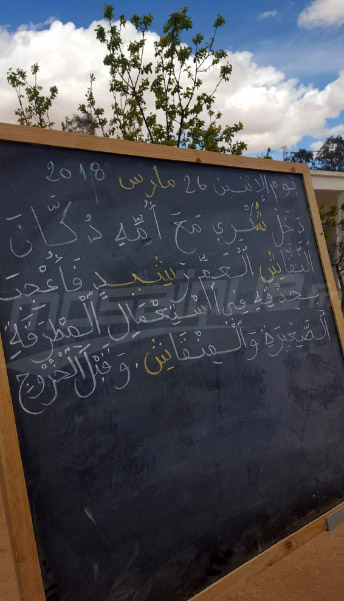 يوم الاثنين 26 مارس 2018
دَخَلَ شُكْرِي مَعَ أُمِّهِ دُكَّانَ
النَّقَّاشِ الْعَمِّ رَشِيدٍ فَأُعْجِبَ
بِحِذْقِهِ فِي اسْتِعْمَالِ الْمِطْرَقَةِ
الصَّغِيرَةِ وَالْمِنْقَاشِ وَقَبْلَ الْخُرُوجِ